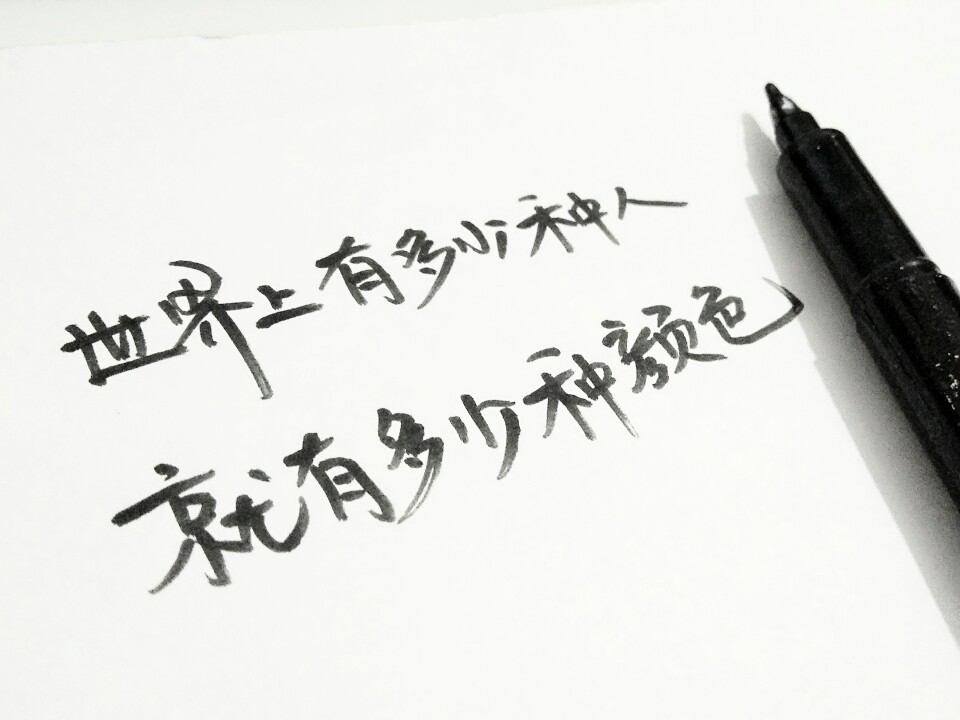 世界上有多少种人
就有多少种颜色